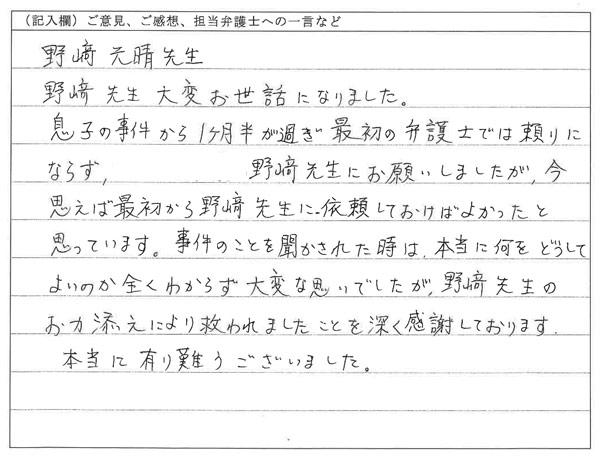 (記入欄)ご意見、ご感想、担当弁護士への一言など
野﨑 元晴先生
野﨑 先生 大変お世話になりました。
息子の事件から1ヶ月半が過ぎ 最初の弁護士では頼りに
ならず, 野﨑先生にお願いしましたが, 今
思えば最初から野﨑先生に依頼しておけばよかったと
思っています。事件のことを聞かされた時は, 本当に何をどうして
よいのか全くわからず大変な思いでしたが, 野﨑先生の
お力添えにより救われましたことを深く感謝しております.
本当に有り難うございました。